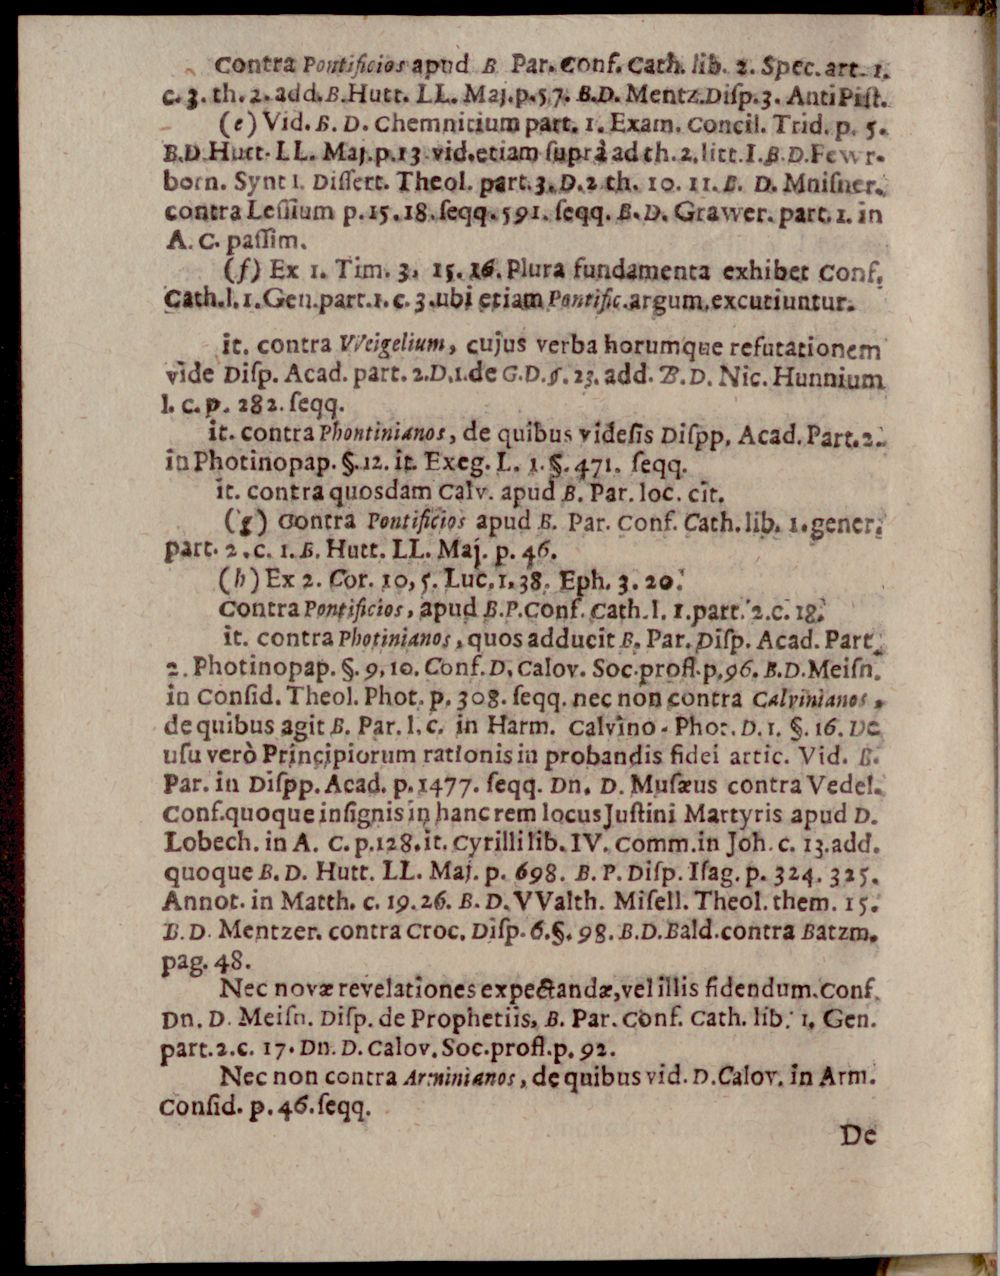 Contra Pontificios apud B Par. Conf. Cath. lib. 2. Spec. art. 1.
c. 3. th. 2. add. B. Hutt. LL. Maj. p. 57. B. D. Mentz. Disp. 3. AntiPist.
(e) Vid. B. D. Chemnitium part. 1. Exam. Concil. Trid. p. 5.
B. D. Hutt. LL. Maj. p. 13 vid. etiam suprà ad th. 2. litt. I. B. D. Fewr-
born. Synt I. Dissert. Theol. part. 3. D. 2 th. 10. 11. B. D. Mnisner.
contra Lessium p. 15. 18. seqq. 591. seqq. B. D. Grawer. part. 1. in
A. C. passim.
(f) Ex 1. Tim. 3. 15. 16. Plura fundamenta exhibet Conf.
Cath. l. 1. Gen. part. 1. c. 3. ubi etiam Pontific. argum. excutiuntur.
it. contra VVeigelium, cujus verba horumque refutationem
vide Disp. Acad. part. 2. D. 1. de G. D. §. 23. add. B. D. Nic. Hunnium
l. c. p. 282. seqq.
it. contra Phontinianos, de quibus videsis Dispp. Acad. Part. 2.
in Photinopap. §. 12. it. Exeg. L. 1. §. 471. seqq.
it. contra quosdam Calv. apud B. Par. loc. cit.
(g) Contra Pontificios apud B. Par. Conf. Cath. lib. 1. gener.
part. 2. c. 1. B. Hutt. LL. Maj. p. 46.
(h) Ex 2. Cor. 10, 5. Luc. 1. 38. Eph. 3. 20.
Contra Pontificios, apud B. P. Conf. Cath. l. 1. part. 2. c. 18.
it. contra Photinianos, quos adducit B. Par. Disp. Acad. Part.
2. Photinopap. §. 9, 10. Conf. D. Calov. Soc. profl. p. 96. B. D. Meisn.
in Consid. Theol. Phot. p. 308. seqq. nec non contra Calvinianos,
de quibus agit B. Par. l. c. in Harm. Calvino-Phot. D. 1. §. 16. De
usu verò Principiorum rationis in probandis fidei artic. Vid. B.
Par. in Dispp. Acad. p. 1477. seqq. Dn. D. Musæus contra Vedel.
Conf. quoque insignis in hanc rem locus Justini Martyris apud D.
Lobech. in A. C. p. 128. it. Cyrilli lib. IV. Comm. in Joh. c. 13. add.
quoque B. D. Hutt. LL. Maj. p. 698. B. P. Disp. Isag. p. 324. 325.
Annot. in Matth. c. 19. 26. B. D. VValth. Misell. Theol. them. 15.
B. D. Mentzer. contra Croc. Disp. 6. §. 98. B. D. Bald. contra Batzm.
pag. 48.
Nec novæ revelationes expectandæ, vel illis fidendum. Conf.
Dn. D. Meisn. Disp. de Prophetiis, B. Par. Conf. Cath. lib. 1. Gen.
part. 2. c. 17. Dn. D. Calov. Soc. profl. p. 92.
Nec non contra Arminianos, de quibus vid. D. Calov. in Arm.
Consid. p. 46. seqq.
De